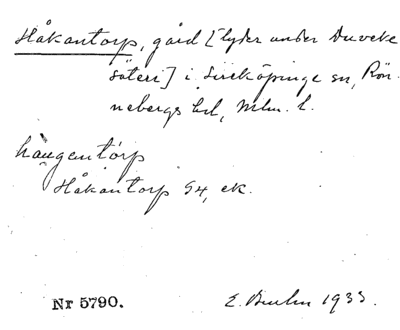 Håkantorp, gård [lyder under Duveke
säteri] i Sireköpinge sn, Rön-
nebergs hd, Mlm. l.
håugantårp
Håkantorp G4, ek.
Nr 5790.
E. 1933